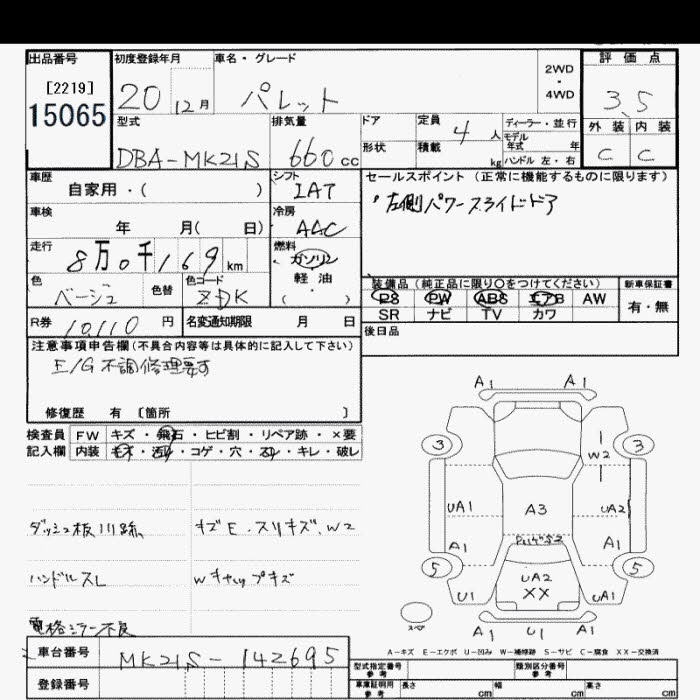 出品番号 初度登録年月 車名・グレード 2WD・4WD 評価点
[2219]
15065 20 12月 パレット 3.5
型式 排気量 ドア 定員 4人 ディーラー・並行 外装 内装
DBA-MK21S 660cc 形状 積載 kg モデル年式 年 ハンドル 左・右 C C
車歴 シフト セールスポイント (正常に機能するものに限ります)
自家用・( ) IAT 左側パワースライドドア
車検 年 月( 日) 冷房 AAC
走行 8万0千169km 燃料 ガソリン 軽油 ( )
色 ベージュ 色替 色コード ZDK
装備品 (純正品に限り○をつけてください) 新車保証書
PS PW ABS エアB AW 有・無
SR ナビ TV カワ
R券 10,110円 名変通知期限 月 日 後日品
注意事項申告欄(不具合内容等は具体的に記入して下さい)
E/G不調修理要す
修復歴 有 〔箇所 〕
検査員 FW キズ・飛石・ヒビ割・リペア跡・×要
記入欄 内装 コゲ・穴・キレ・破レ
キズE.スリキズ.W2
ハンドルスレ
電格ミラー不良
A1 A1
3 3
W2
UA1 A3 UA2
A1 A1
5 5
UA2
XX
U1 UA1
A1 U1 A1
A-キズ E-エクボ U-凹み W-補修跡 S-サビ C-腐食 XX-交換済
車台番号 MK21S-142695 型式指定番号 参考 類別区分番号 参考
登録番号 車庫証明用 参考 長さ cm 幅 cm 高さ cm